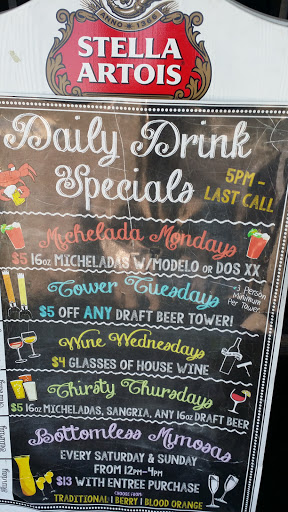 ANNO • 1366
STELLA
ARTOIS
Daily Drink
Specials
5PM -
LAST CALL
Michelada Mondays
$5 16oz MICHELADAS W/MODELO OR DOS XX
Tower Tuesdays
*3 Person
Minimum
Per Tower
$5 OFF ANY DRAFT BEER TOWER!
Wine Wednesdays
$4 GLASSES OF HOUSE WINE
Thirsty Thursdays
$5 16oz MICHELADAS, SANGRIA, ANY 16oz DRAFT BEER
Bottomless Mimosas
EVERY SATURDAY & SUNDAY
FROM 12PM-4PM
$13 WITH ENTREE PURCHASE
CHOOSE FROM:
TRADITIONAL | BERRY | BLOOD ORANGE
Saturday
Sunday